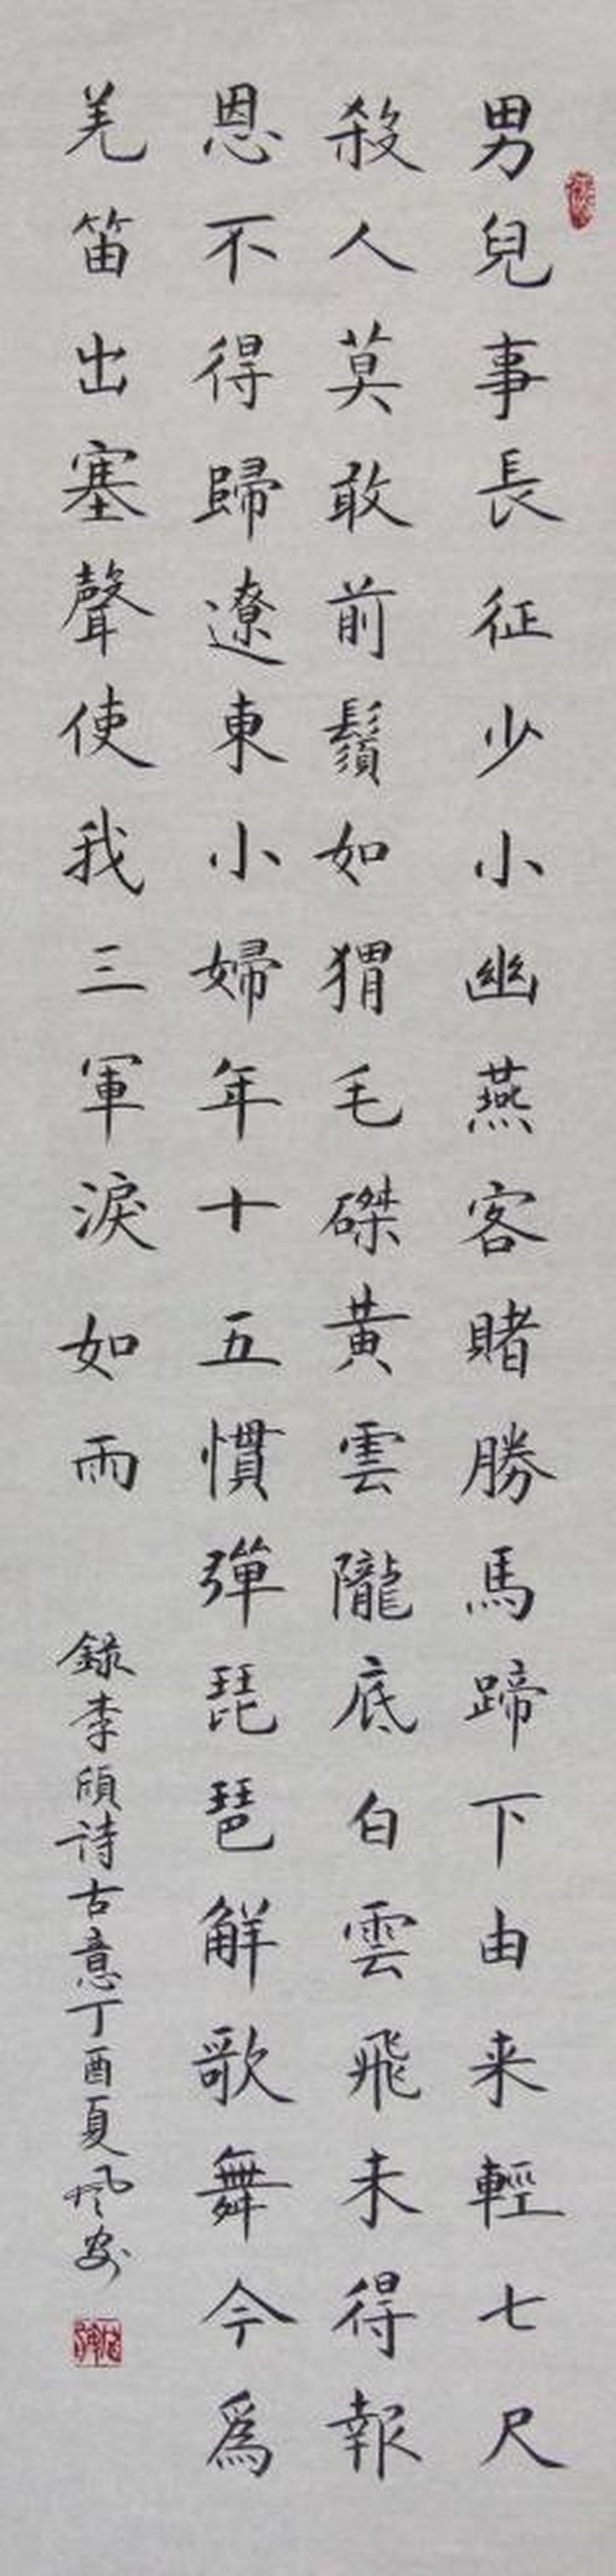 男兒事長征少小幽燕客賭勝馬蹄下由来輕七尺
殺人莫敢前鬚如猬毛磔黃雲隴底白雲飛未得報
恩不得歸遼東小婦年十五慣彈琵琶解歌舞今為
羌笛出塞聲使我三軍淚如雨
錄李頎詩古意丁酉夏